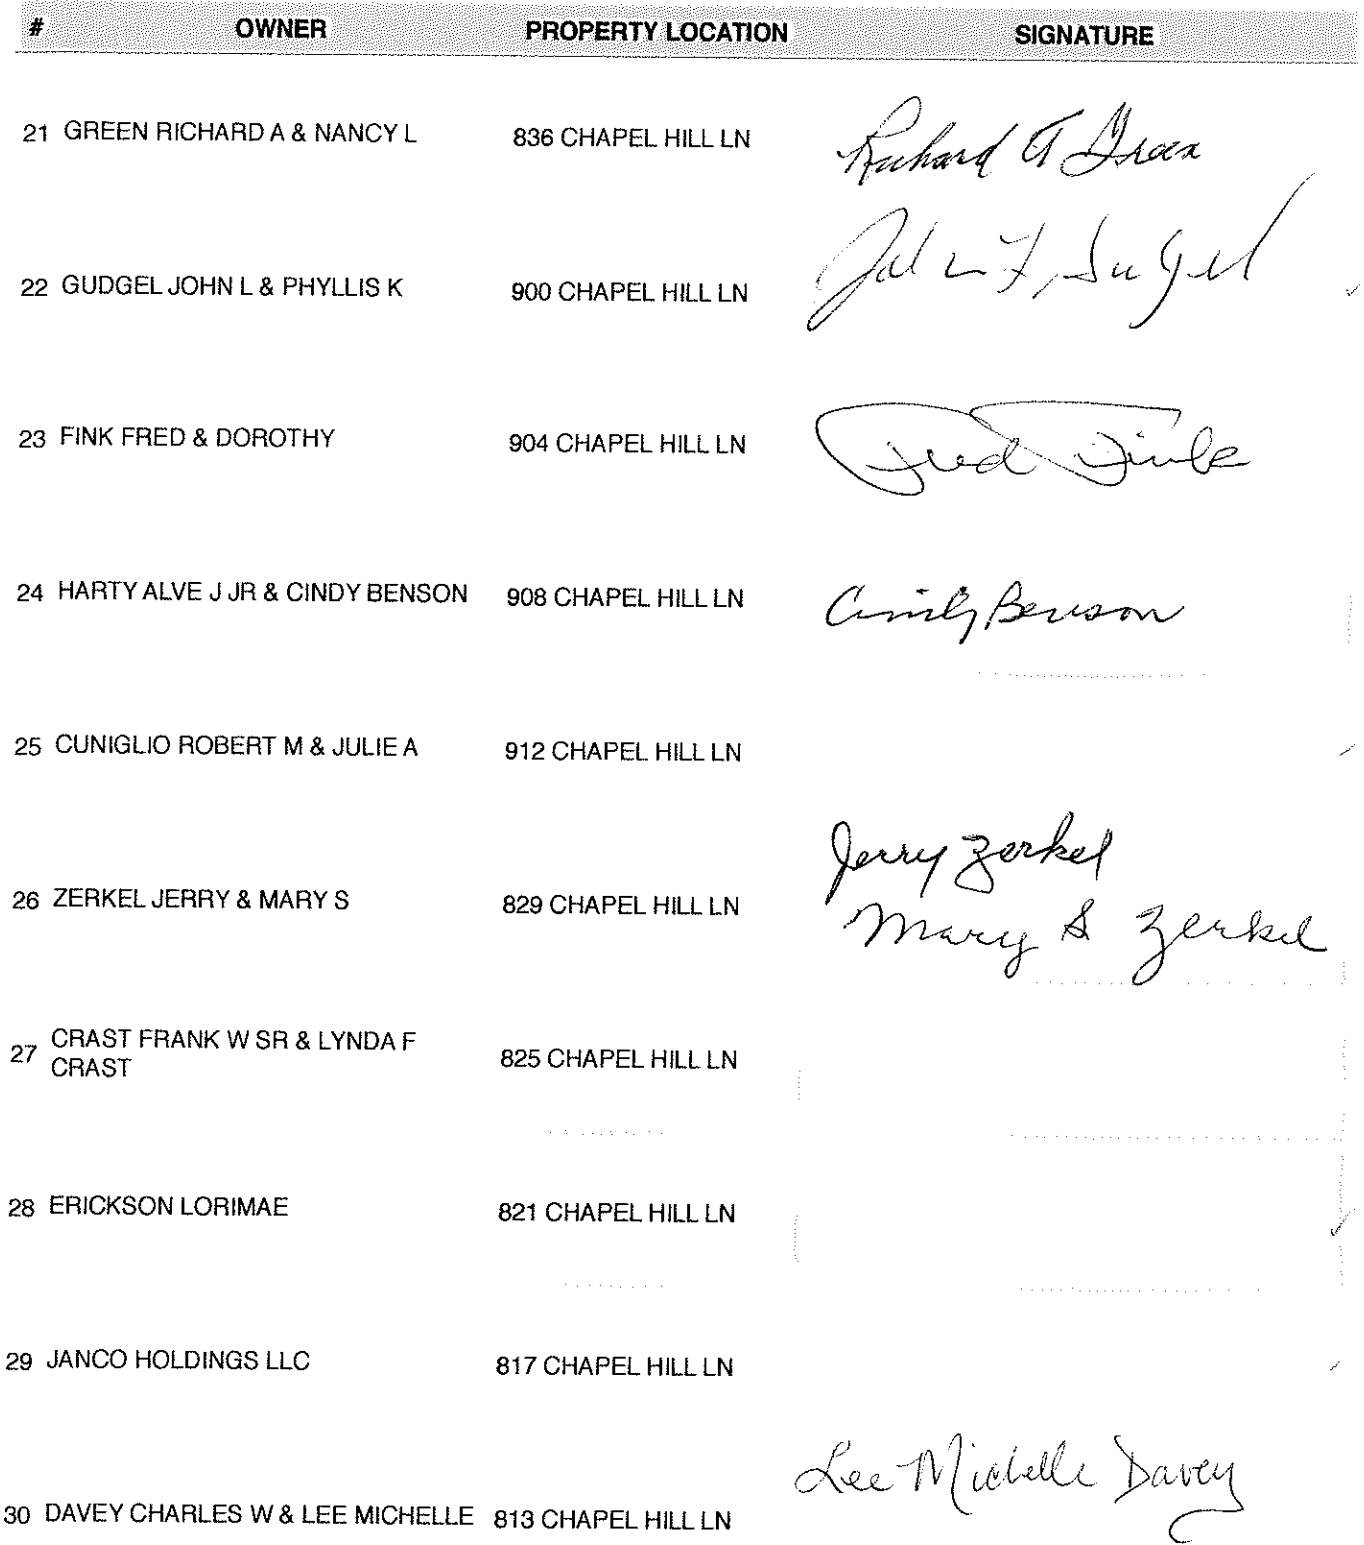 # OWNER PROPERTY LOCATION SIGNATURE
21 GREEN RICHARD A & NANCY L 836 CHAPEL HILL LN Richard A Green
22 GUDGEL JOHN L & PHYLLIS K 900 CHAPEL HILL LN John L Gudgel
23 FINK FRED & DOROTHY 904 CHAPEL HILL LN Fred Fink
24 HARTY ALVE J JR & CINDY BENSON 908 CHAPEL HILL LN Cindy Benson
25 CUNIGLIO ROBERT M & JULIE A 912 CHAPEL HILL LN
Jerry Zerkel
26 ZERKEL JERRY & MARY S 829 CHAPEL HILL LN Mary S Zerkel
27 CRAST FRANK W SR & LYNDA F
CRAST 825 CHAPEL HILL LN
28 ERICKSON LORIMAE 821 CHAPEL HILL LN
29 JANCO HOLDINGS LLC 817 CHAPEL HILL LN
Lee Michelle Davey
30 DAVEY CHARLES W & LEE MICHELLE 813 CHAPEL HILL LN